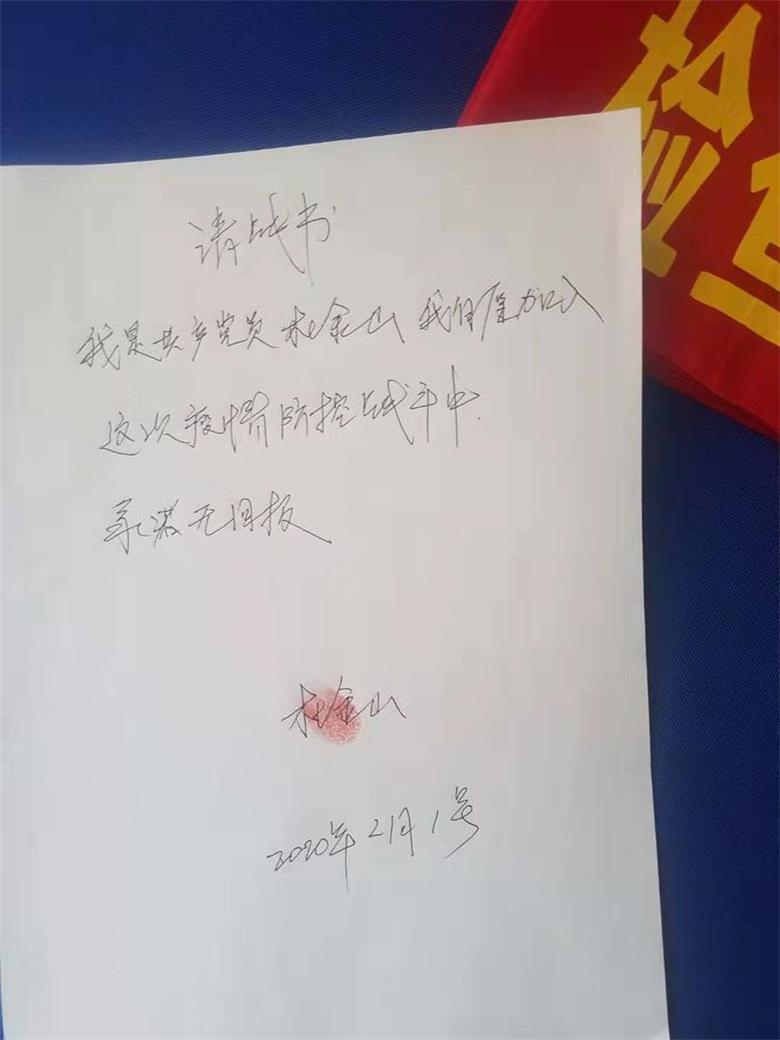 请战书
我是共产党员杜金山我自愿加入
这次疫情防控战斗中.
承诺无回报
杜金山
2020年2月1号
检查